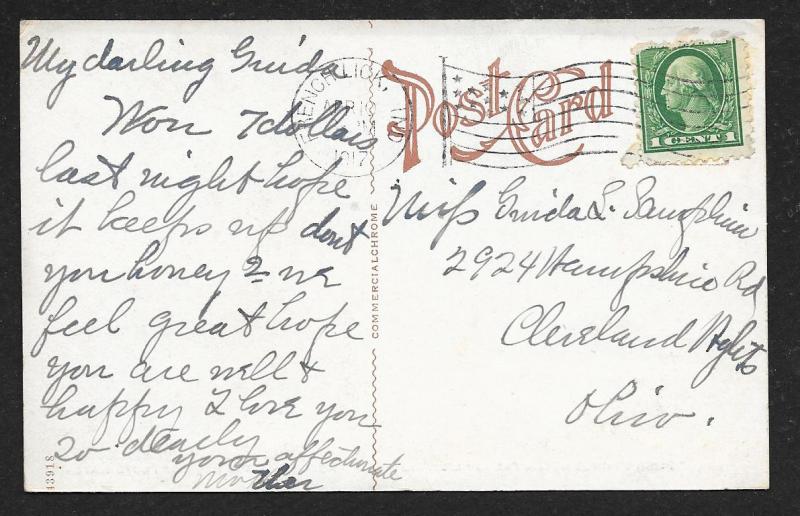 My darling Guida
Won 7 dollars
last night hope
it keeps up dont
you honey? we
feel great hope
you are well &
happy I love you
so dearly
your affectionate
mother
COMMERCIALCHROME
43918
FRENCH LICK
1917
Post Card
1 CENT 1
Miss Guida L.
2924 Hampshire Rd
Cleveland Hghts
Ohio.